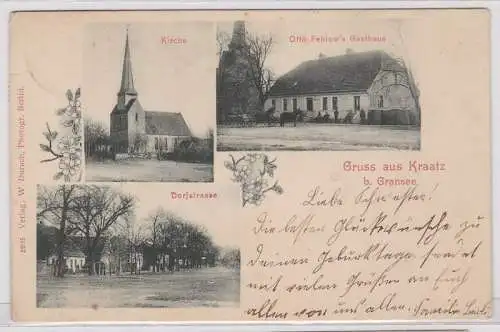 Kirche
Otto Fehlow's Gasthaus
Gruss aus Kraatz
b. Gransee.
Dorfstrasse
Verlag. W Photogr. Berlin.
Liebe Schwester!
Die besten Glückwünsche zu
Deinen Geburtstage sendet
mit vielen Grüßen an Euch
allen von uns allen. Familie